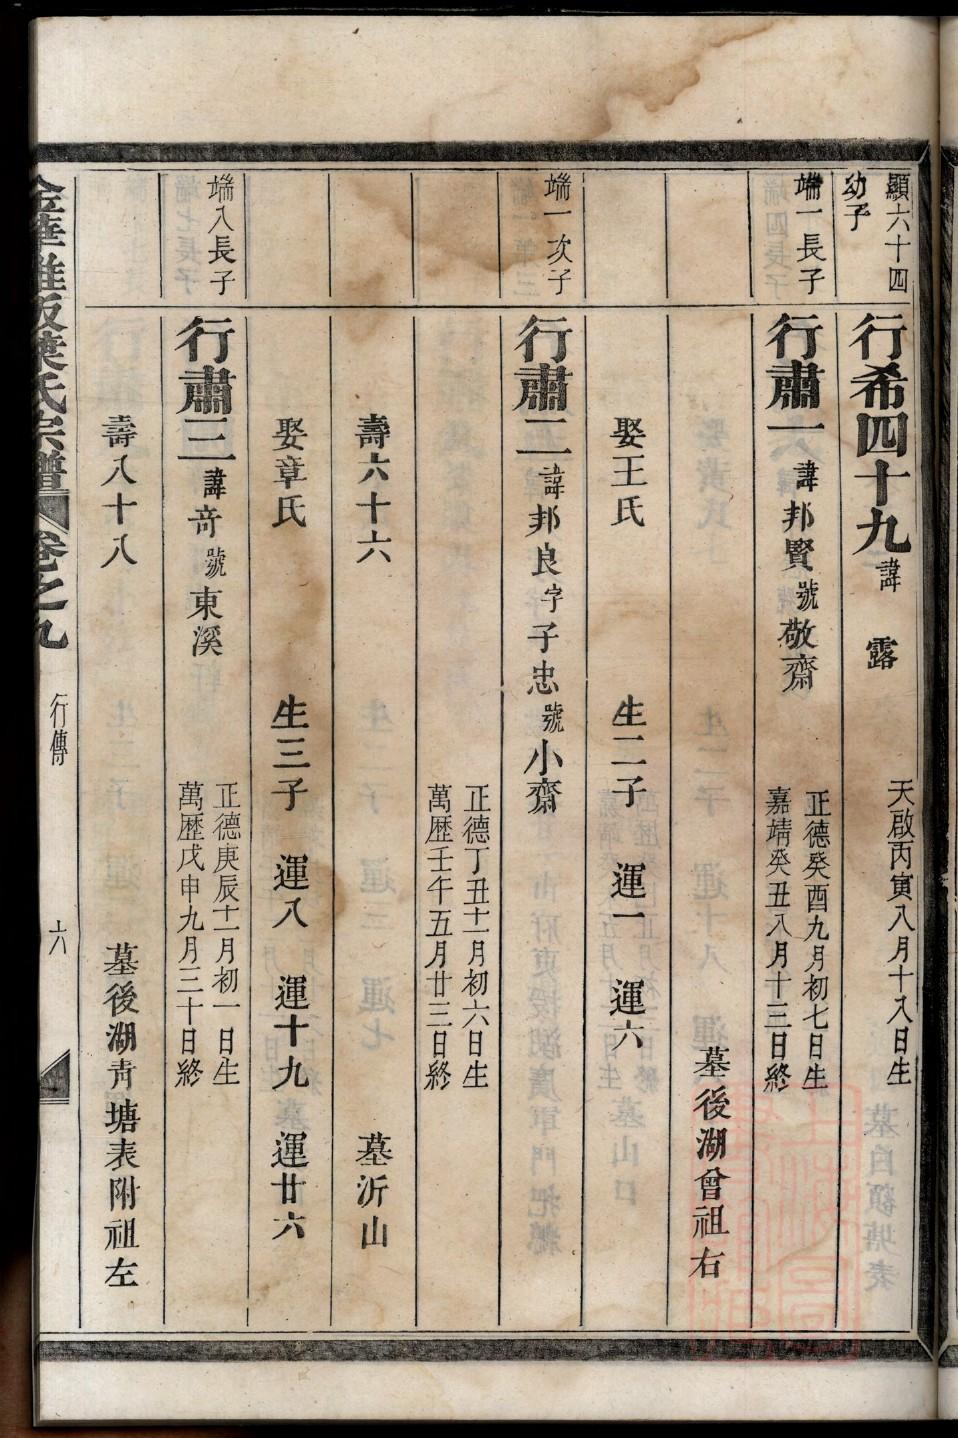 顯六十四
幼子
行希四十九諱 露
天啟丙寅八月十八日生
端一長子
行肅一諱邦賢號敬齋
正德癸酉九月初七日生
嘉靖癸丑八月十三日終
墓後湖曾祖右
娶王氏 生二子 運一 運六
端一次子
行肅二諱邦良字子忠號小齋
正德丁丑十一月初六日生
萬歷壬午五月廿三日終
壽六十六 墓沂山
娶章氏 生三子 運八 運十九 運廿六
端八長子
行肅三諱奇號東溪
正德庚辰十一月初一日生
萬歷戊申九月三十日終
壽八十八 墓後湖青塘表附祖左
金華雅畈葉氏宗譜 卷之九 行傳 六